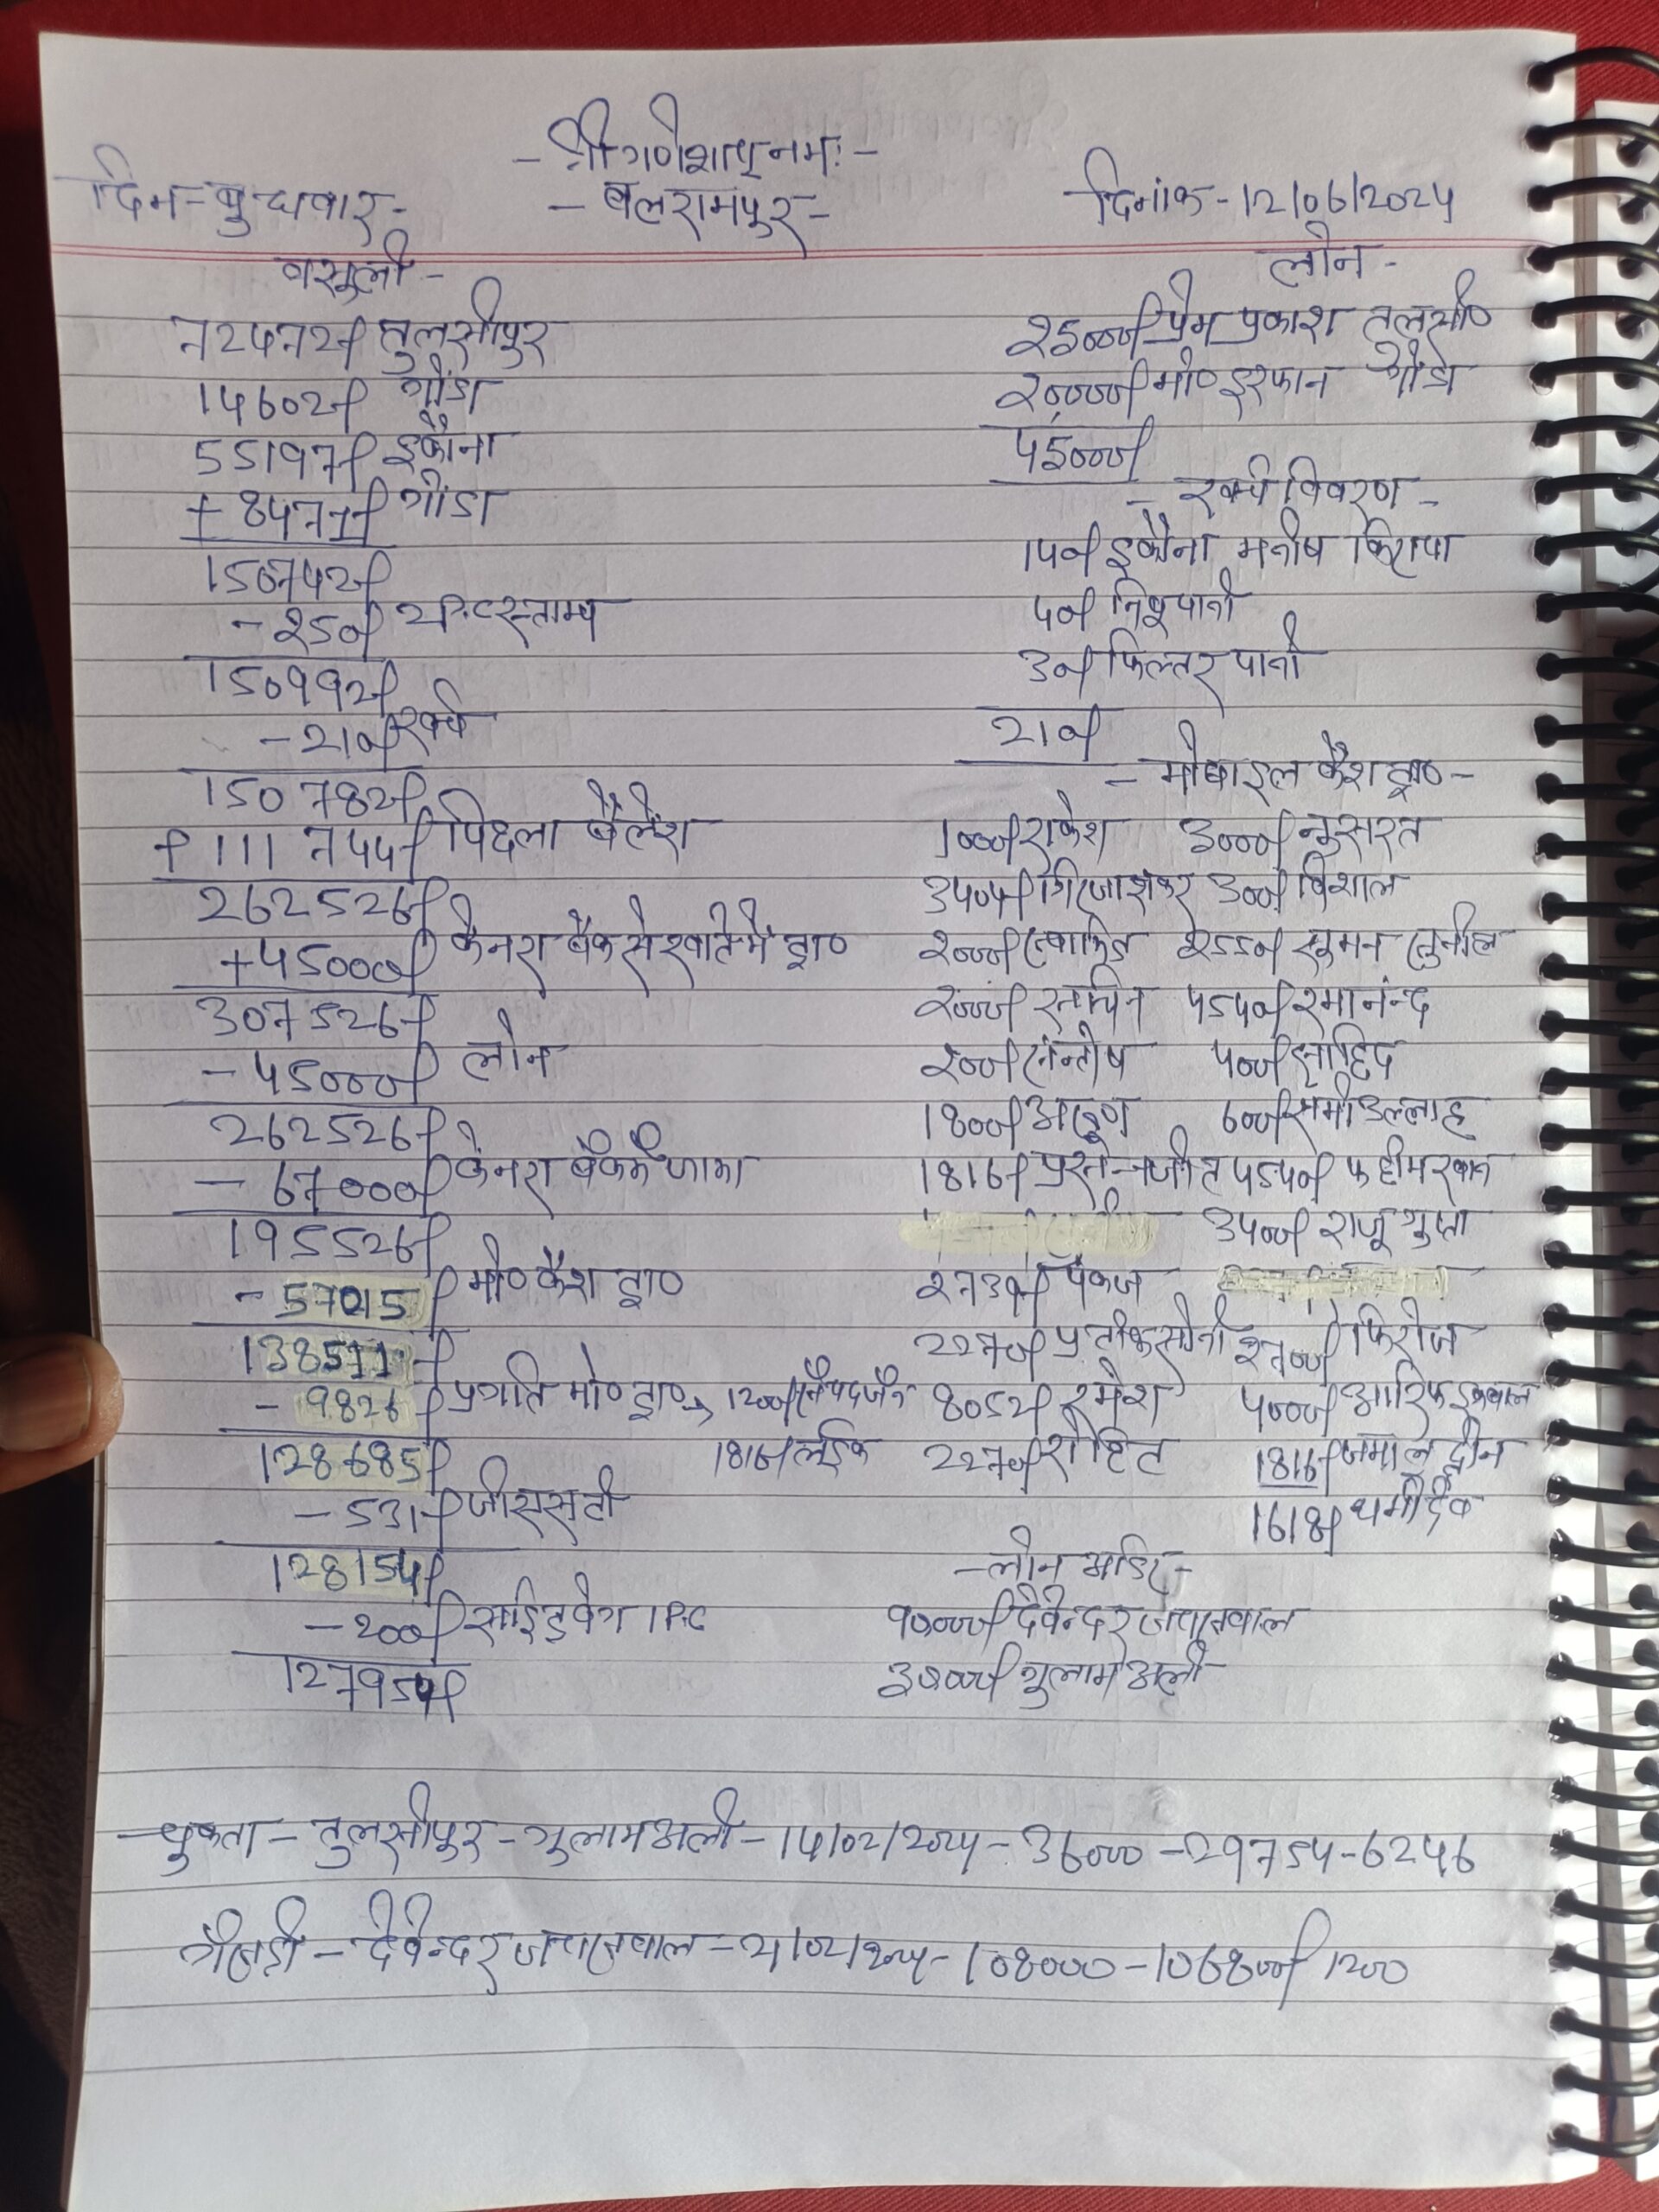 - श्री गणेशाय नमः -
दिन - बुधवार - - बलरामपुर - दिनांक - 12/06/2024
वसूली - लोन -
72472/ तुलसीपुर 25000/ प्रेम प्रकाश तुलसी०
14602/ गोंडा 20000/ मो० इरफान गोंडा
55197/ इकौना 45000/
+ 8471/ गोंडा - खर्च विवरण -
150742/ 140/ इकौना मनीष किराया
- 250/ स्ताम्प 40/ पानी
150992/ 30/ फिल्तर पानी
- 210/ खर्च 210/
150782/ - मोबाइल कैश ट्रा० -
+ 111744/ पिछला बैलेंश 1000/ राकेश 3000/ नुसरत
262526/ 3404/ गिरजाशंकर 300/ विशाल
+ 45000/ केनरा बैंक से खाते में ट्रा० 2000/ 2550/ सुमन सुनील
307526/ 2000/ सचिन 4540/ रमानंन्द
- 45000/ लोन 200/ संन्तोष 400/ साहिद
262526/ 1800/ अरुण 600/ समीउल्लाह
- 67000/ केनरा बैंक में जमा 1816/ प्रसन्नजीत 4540/ फहीम खान
195526/ 3400/ राजू गुप्ता
- 57015/ मो० कैश ट्रा० 2739/ पंकज
138511/ 2270/ प्रतीक सोनी 2700/ फिरोज
- 9826/ प्रगति मो० ट्रा० → 1200/ 8052/ रमेश 4000/ आरिफ इकबाल
128685/ 1816/ लईक 2270/ रोहित 1816/ जमालुद्दीन
- 531/ जीएसटी 1618/ धर्मदेव
128154/ - लोन -
- 200/ साईड बेग 1 PC 90000/ देवेन्दर जायसवाल
127954/ 30000/ गुलाम अली
चुकता - तुलसीपुर - गुलाम अली - 14/02/2024 - 36000 - 29754 - 6246
देवेन्दर जायसवाल - 21/02/2024 - 108000 - 106800/ 1200